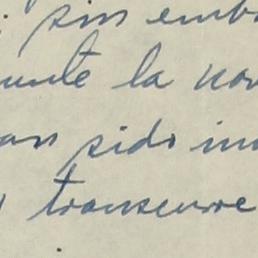 sin emba
la nov
an sido in
transcurre